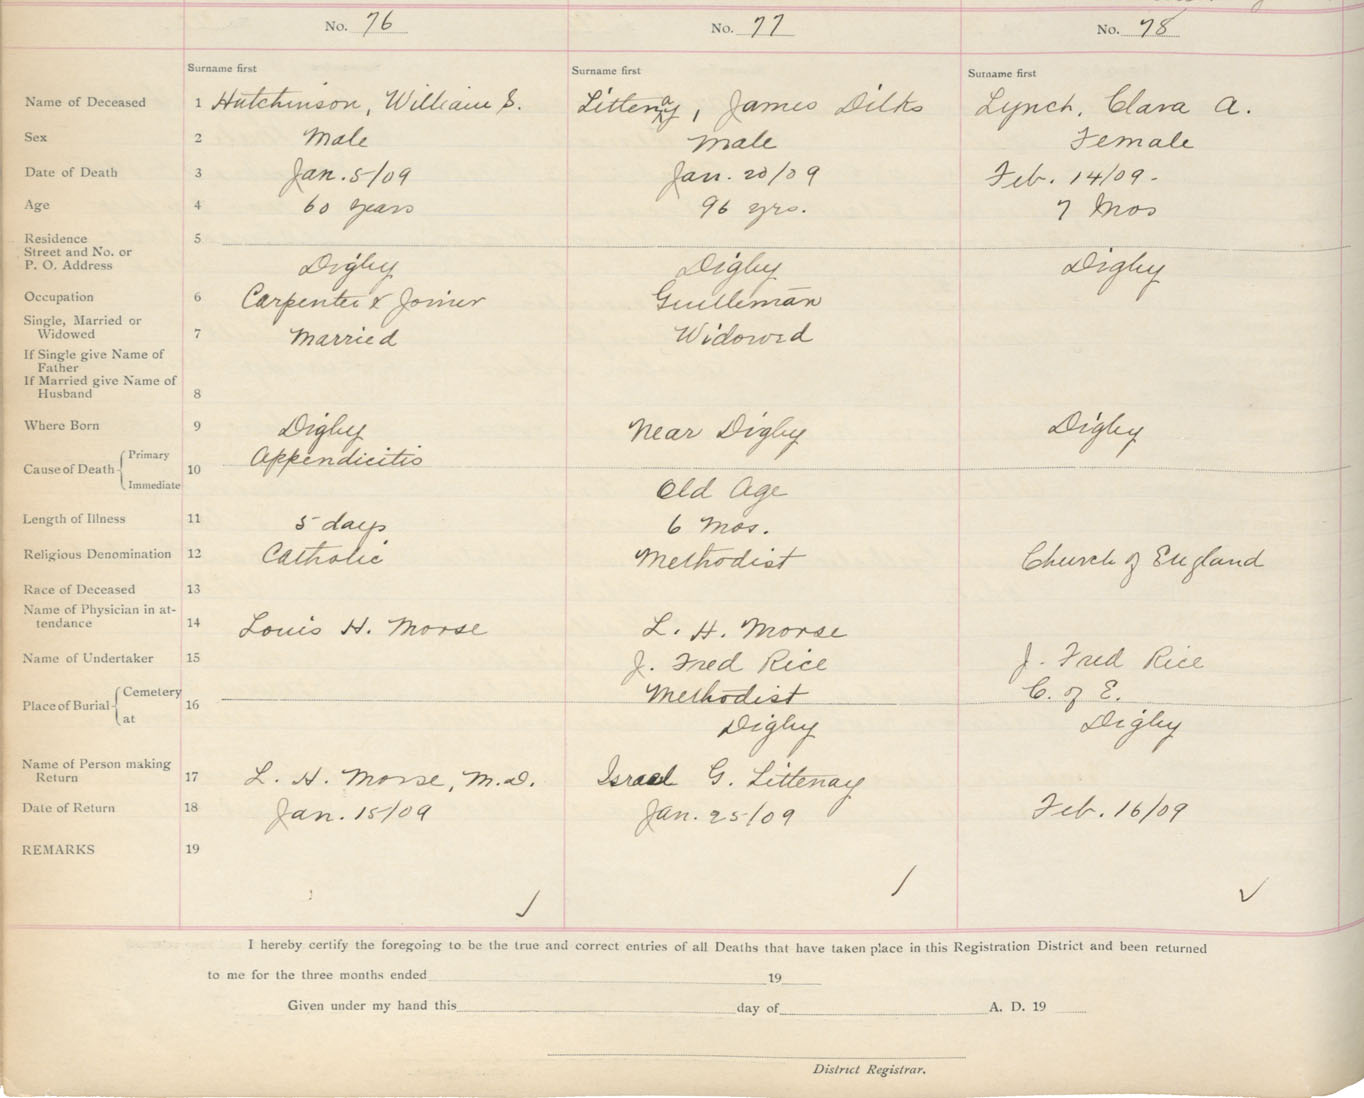 No. 76 No. 77 No. 78
Surname first Surname first Surname first
Name of Deceased 1 Hutchinson, William S. Littenay, James Dilks Lynch, Clara A.
Sex 2 Male Male Female
Date of Death 3 Jan. 5/09 Jan. 20/09 Feb. 14/09-
Age 4 60 years 96 yrs. 7 Mos
Residence 5
Street and No. or
P. O. Address Digby Digby Digby
Occupation 6 Carpenter & Joiner Gentleman
Single, Married or
Widowed 7 Married Widowed
If Single give Name of
Father
If Married give Name of
Husband 8
Where Born 9 Digby Near Digby Digby
Cause of Death Primary 10 Appendicitis
Immediate Old Age
Length of Illness 11 5 days 6 Mos.
Religious Denomination 12 Catholic Methodist Church of England
Race of Deceased 13
Name of Physician in at-
tendance 14 Louis H. Morse L. H. Morse
Name of Undertaker 15 J. Fred Rice J. Fred Rice
Place of Burial Cemetery 16 Methodist C. of E.
at Digby Digby
Name of Person making
Return 17 L. H. Morse, M.D. Israel G. Littenay
Date of Return 18 Jan. 15/09 Jan. 25/09 Feb. 16/09
REMARKS 19
I hereby certify the foregoing to be the true and correct entries of all Deaths that have taken place in this Registration District and been returned
to me for the three months ended 19
Given under my hand this day of A. D. 19
District Registrar.